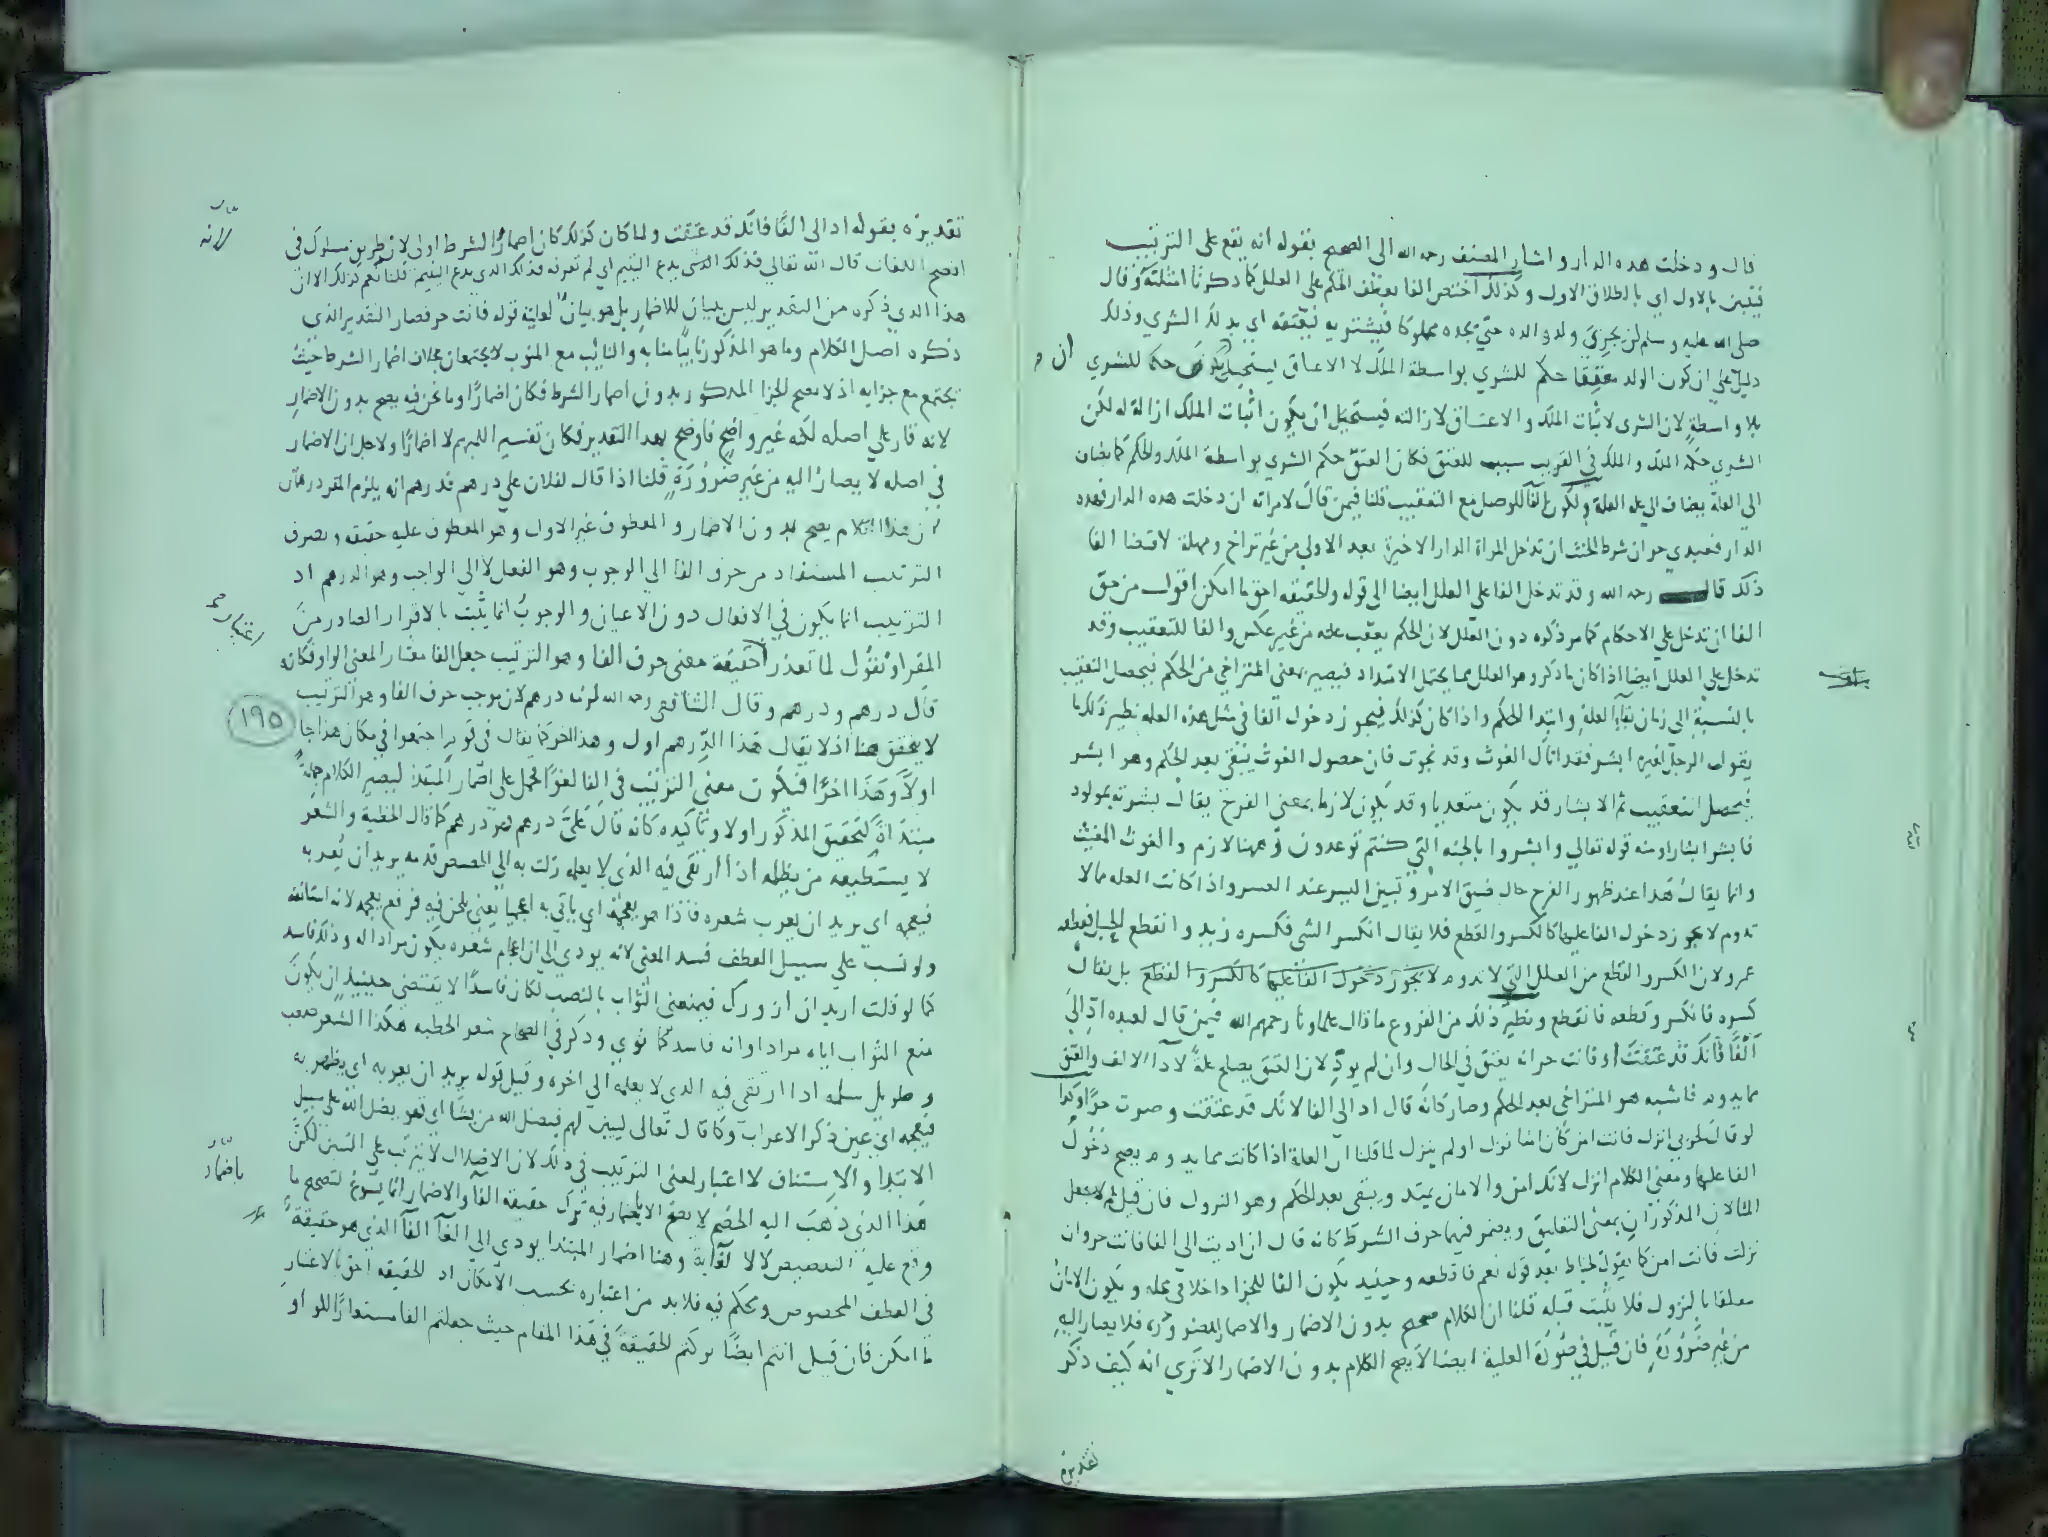 قال ودخلت هذه الدار واشار المصنف رحمه الله الى الصحيح بقوله انه يقع على الترتيب
فيتبين بالاول اي بالطلاق الاول وكذلك اختص الفا بعطف الحكم على العلل كما ذكرنا امثلته وقال
صلى الله عليه وسلم لن يجزي ولد والده حتى يجده مملوكا فيشتريه فيعتقه اي بذلك الشري وذلك
دليل على ان كون الولد معتقا حكم للشري بواسطة الملك لا الاعتاق يستحيل ان يكون حكما للشري
بلا واسطة لان الشرى لاثبات الملك والاعتاق لازالته فيستحيل ان يكون اثبات الملك ازالة له لكن
الشرى حكمه الملك والملك في القريب سبب للعتق فكان العتق حكم الشرى بواسطة الملك والحكم كما يضاف
الى العلة يضاف الى علة العلة ولكون الفا للوصل مع التعقيب قلنا فيمن قال لامراته ان دخلت هذه الدار فهذه
الدار فعبدي حر ان شرط الحنث ان تدخل المراة الدار الاخيرة بعد الاولى من غير تراخ ومهلة لاقتضا الفا
ذلك قال رحمه الله وقد تدخل الفا على العلل ايضا الى قوله والحقيقة احق ما امكن اقول من حق
الفا ان تدخل على الاحكام كما مر ذكره دون العلل لان الحكم يعقب علته من غير عكس والفا للتعقيب وقد
تدخل على العلل ايضا اذا كان ما ذكر وهو العلل مما يحتمل الامتداد فيصير بمعنى المتراخي من الحكم فيحصل التعقيب
بالنسبة الى زمان بقاء العلة وابتدا الحكم واذا كان كذلك فيجوز دخول الفا في مثل هذه العلة نظير ذلك ما
يقول الرجل لغيره ابشر فقد اتاك الغوث وقد نجوت فان حصول الغوث يبقى بعد الحكم وهو ابشر
فيحصل التعقيب ثم الابشار قد يكون متعديا وقد يكون لازما بمعنى الفرح يقال بشرته بمولود
فابشر ابشارا ومنه قوله تعالى وابشروا بالجنة التي كنتم توعدون وههنا لازم والغوث المغيث
وانما يقال هذا عند ظهور الفرح حال ضيق الامر وتبيين اليسر عند العسر واذا كانت العلة مما لا
تدوم لا يجوز دخول الفا عليها كالكسر والقطع فلا يقال انكسر الشي فكسره زيد وانقطع الحبل فقطعه
عمرو لان الكسر والقطع من العلل التي لا تدوم لا يجوز دخول الفا عليها كالكسر والقطع بل يقال
كسره فانكسر وقطعه فانقطع ونظير ذلك من الفروع ما قال علماونا رحمهم الله فيمن قال لعبده اد الي
الفا فانك قد عتقت او فانت حر انه يعتق في الحال وان لم يود لان العتق يصلح علة لاداء الالف والعتق
مما يدوم فاشبه هو المتراخي بعد الحكم وصار كانه قال اد الي الفا لانك قد عتقت وصرت حرا وكذا
لو قال لحربي انزل فانت امن كان امنا نزل او لم ينزل لما قلنا ان العلة اذا كانت مما يدوم يصح دخول
الفا عليها ومعنى الكلام انزل لانك امن والامان يمتد ويبقى بعد الحكم وهو النزول فان قيل لم لا يجعل
المثالان المذكوران بمعنى التعليق ويضمر فيهما حرف الشرط كانه قال ان اديت الي الفا فانت حر وان
نزلت فانت امن كما يقول لخياط بعد قوله نعم فاقطعه وحينيذ يكون الفا للجزا داخلا في محله ويكون الامان
معلقا بالنزول فلا يثبت قبله قلنا ان الكلام صحيح بدون الاضمار والاضمار لضرورة فلا يصار اليه
من غير ضرورة فان قيل في صورة العلية ايضا لا يصح الكلام بدون الاضمار الا ترى انه كيف ذكر
تقديره
تقديره بقوله اد الي الفا فانك قد عتقت ولما كان كذلك كان اضمار الشرط اولى لانه طريق مسلوك في
افصح اللغات قال الله تعالى فذلك الذي يدع اليتيم اي لم تعرفه فذلك الذي يدع اليتيم قلنا نعم كذلك الا ان
هذا الذي ذكره من التقدير ليس ببيان للاضمار بل هو بيان لعلية قوله فانت حر فصار التقدير الذي
ذكره اصل الكلام وما هو المذكور نايبا منابه والنايب مع المنوب لا يجتمعان بخلاف اضمار الشرط حيث
يجتمع مع جزايه اذ لا يصح الجزا المذكور بدون اضمار الشرط فكان اضمارا وما نحن فيه يصح بدون الاضمار
لانه قار على اصله لكنه غير واضح فاوضح بهذا التقدير فكان تفسير المبهم لا اضمارا ولاجل ان الاضمار
في اصله لا يصار اليه من غير ضرورة قلنا اذا قال لفلان علي درهم فدرهم انه يلزم المقر درهمان
لان هذا الكلام يصح بدون الاضمار والمعطوف غير الاول وهو المعطوف عليه حقيقة ويصرف
الترتيب المستفاد من حرف الفا الى الوجوب وهو الفعل لا الى الواجب وهو الدرهم اذ
الترتيب انما يكون في الافعال دون الاعيان والوجوب انما يثبت بالاقرار الصادر من
المقر او نقول لما تعذر حقيقة معنى حرف الفا وهو الترتيب جعل الفا معنى الواو فكانه
قال درهم ودرهم وقال الشافعي رحمه الله لزمه درهم لان موجب حرف الفا وهو الترتيب
لا يتحقق هنا اذ لا يقال هذا الدرهم اول وهذا اخر كما يقال في قوم اجتمعوا في مكان هذا جا
اولا وهذا اخرا فيكون معنى الترتيب في الفا لغوا فحمل على اضمار المبتدا ليصير الكلام جملة
مبتداة لتحقيق المذكور اولا وتاكيده كانه قال علي درهم فهو درهم كما قال الحطية والشعر
لا يستطيعه من يظلمه اذا ارتقى فيه الذي لا يعلمه زلت به الى الحضيض قدمه يريد ان يعربه
فيعجمه اي يريد ان يعرب شعره فاذا هو يعجمه اي ياتي به اعجميا يعني يلحن فيه فرفع يعجمه لانه استانفه
ولو نصب على سبيل العطف فسد المعنى لانه يودي الى ان اعجام شعره يكون مرادا له وذلك فاسد
كما لو قلت اريد ان ازورك فيمنعني الثواب بالنصب لكان فاسدا لا يقتضي حينيذ ان يكون
منع الثواب اياه مرادا وانه فاسد كما نوي وذكر في الصحاح شعر الحطية هكذا الشعر صعب
وطويل سلمه اذا ارتقى فيه الذي لا يعلمه الى اخره وقيل قوله يريد ان يعربه اي يظهر به
فيعجمه اي عين ذكر الاعراب وكما قال تعالى ليبين لهم فيضل الله من يشا اي فهو يضل الله على سبيل
الابتدا والاستيناف لا اعتبار لمعنى الترتيب في ذلك لان الاضلال لا يترتب على التبيين لكن
هذا الذي ذهب اليه الخصم لا يصح الا باضمار فيه ترك حقيقة الفا والاضمار انما يسوغ لتصحيح ما
وقع عليه التنصيص لا لالغايه وهنا اضمار المبتدا يودي الى الغا الفا الذي هو حقيقة
في العطف المخصوص ومحكم فيه فلا بد من اعتباره بحسب الامكان اذ الحقيقة احق بالاعتبار
ما امكن فان قيل انتم ايضا تركتم الحقيقة في هذا المقام حيث جعلتم الفا مستعارا للواو
لانه
١٩٥
باضمار